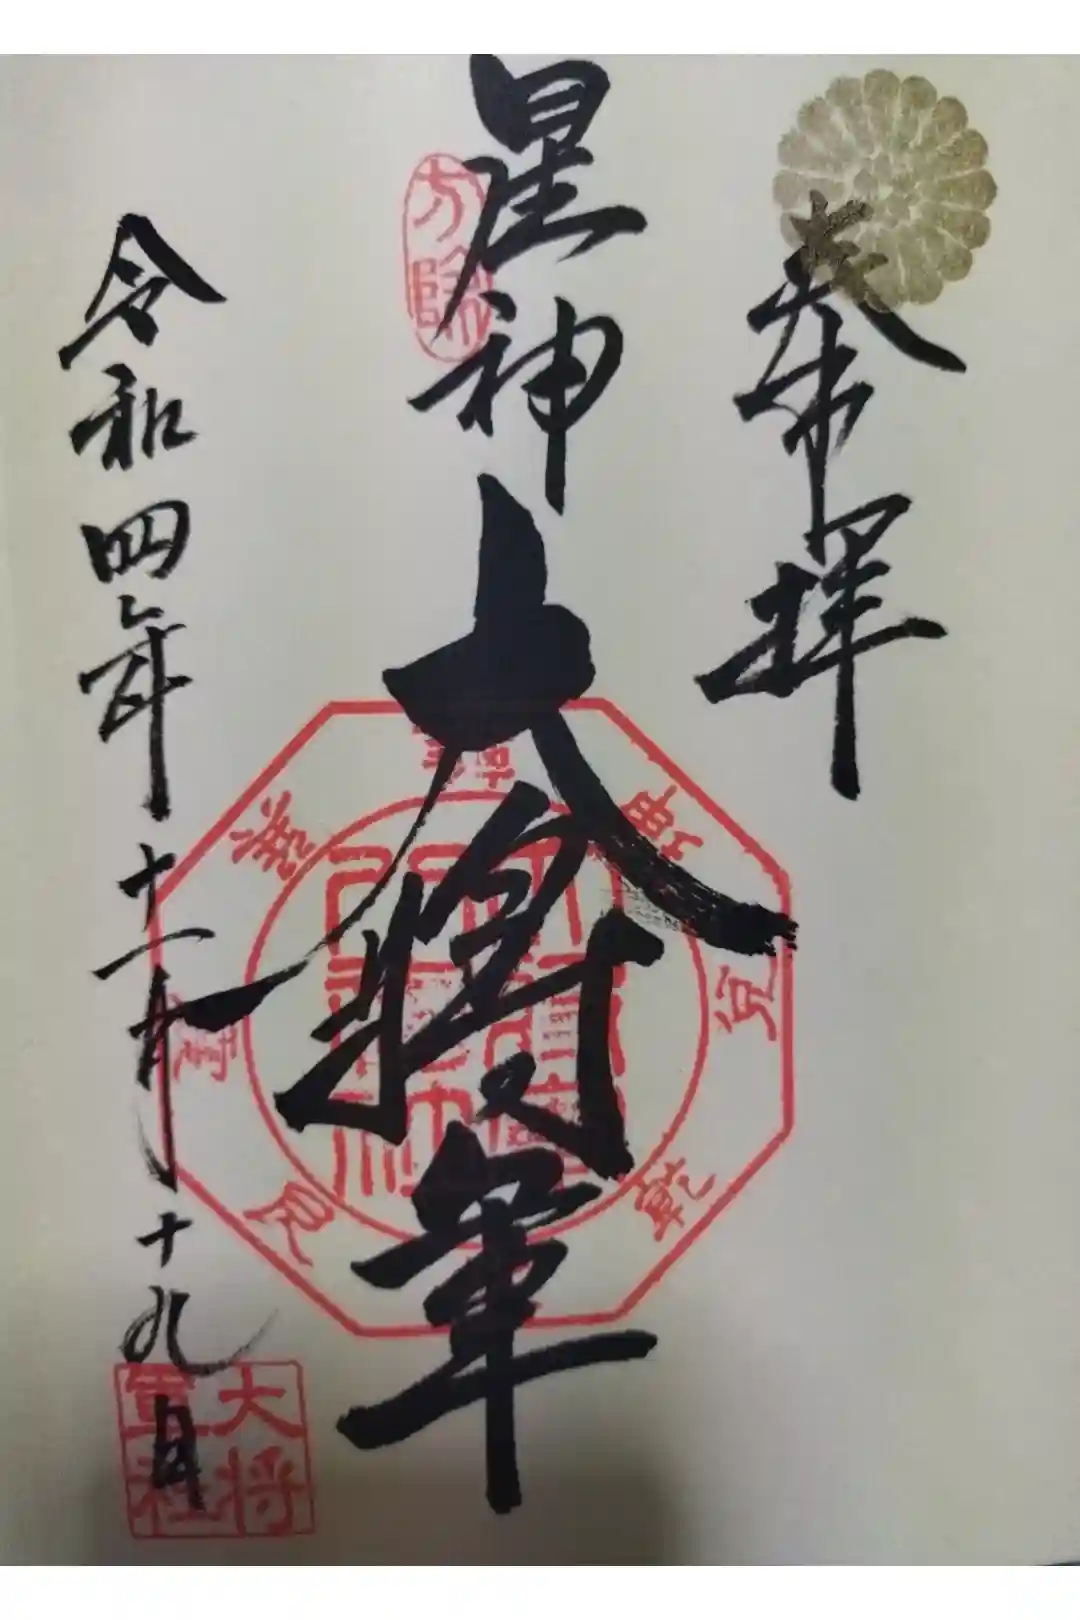 奉拝
星神
大将軍
令和四年十一月十九日
方除
兌
乾
艮
大将
軍社